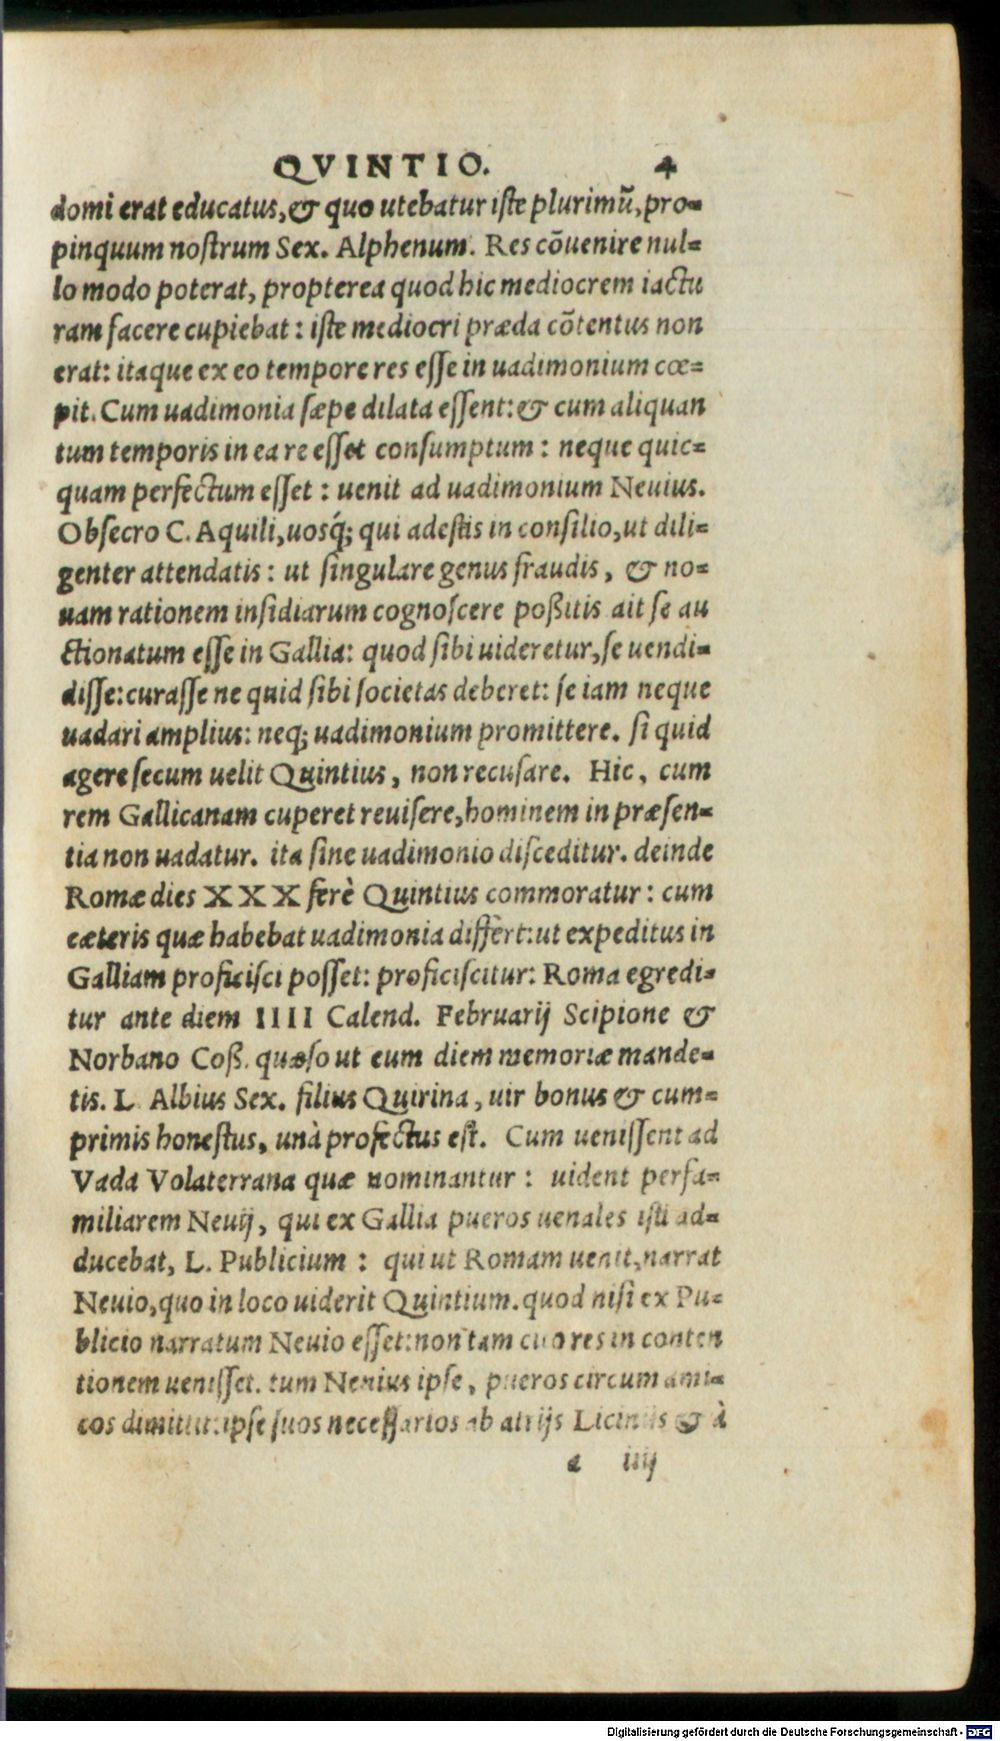 QVINTIO. 4
domi erat educatus, & quo utebatur iste plurimũ, pro-
pinquum nostrum Sex. Alphenum. Res cõuenire nul-
lo modo poterat, propterea quod hic mediocrem iactu
ram facere cupiebat: iste mediocri præda cõtentus non
erat: itaque ex eo tempore res esse in uadimonium cœ-
pit. Cum uadimonia sæpe dilata essent: & cum aliquan
tum temporis in ea re esset consumptum: neque quic-
quam perfectum esset: uenit ad uadimonium Neuius.
Obsecro C. Aquili, uosq́; qui adestis in consilio, ut dili-
genter attendatis: ut singulare genus fraudis, & no-
uam rationem insidiarum cognoscere poßitis ait se au
ctionatum esse in Gallia: quod sibi uideretur, se uendi-
disse: curasse ne quid sibi societas deberet: se iam neque
uadari amplius: neq; uadimonium promittere. si quid
agere secum uelit Quintius, non recusare. Hic, cum
rem Gallicanam cuperet reuisere, hominem in præsen-
tia non uadatur. ita sine uadimonio disceditur. deinde
Romæ dies XXX ferè Quintius commoratur: cum
cæteris quæ habebat uadimonia differt: ut expeditus in
Galliam proficisci posset: proficiscitur: Roma egredi-
tur ante diem IIII Calend. Februarij Scipione &
Norbano Coß. quæso ut eum diem memoriæ mande-
tis. L. Albius Sex. filius Quirina, uir bonus & cum-
primis honestus, unà profectus est. Cum uenissent ad
Vada Volaterrana quæ nominantur: uident perfa-
miliarem Neuij, qui ex Gallia pueros uenales isti ad-
ducebat, L. Publicium: qui ut Romam uenit, narrat
Neuio, quo in loco uiderit Quintium. quod nisi ex Pu-
blicio narratum Neuio esset: non tam cito res in conten
tionem uenisset. tum Neuius ipse, pueros circum ami-
cos dimittit: ipse suos necessarios ab atrijs Licinijs & à
a iiij
Digitalisierung gefördert durch die Deutsche Forschungsgemeinschaft - DFG